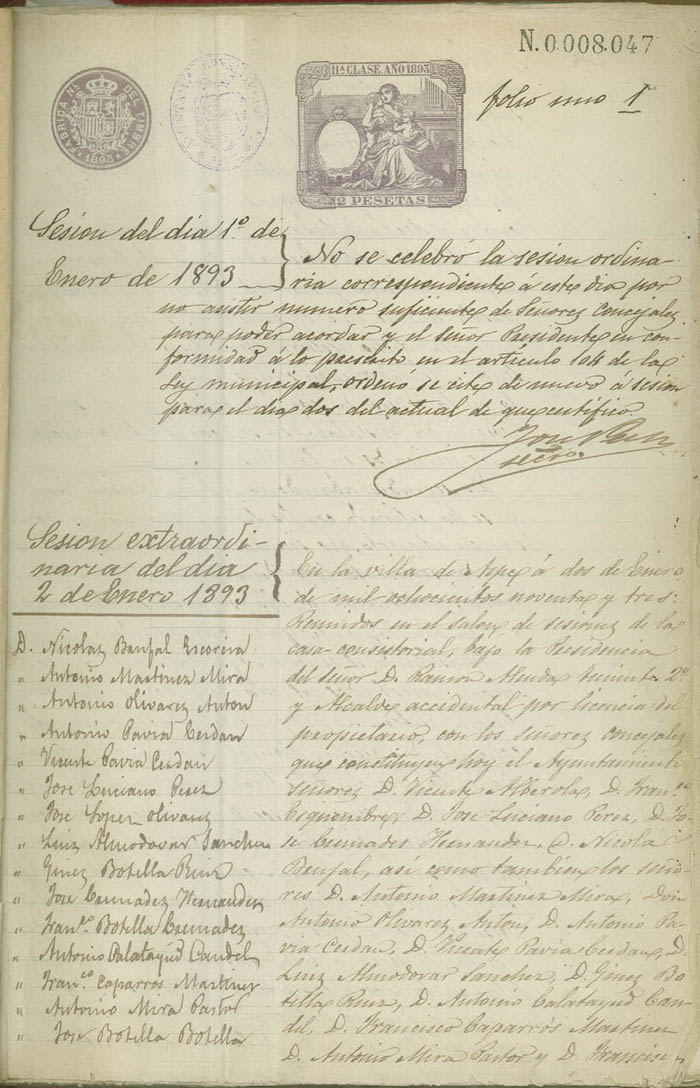 N.0.008.047
FABRICA NL. DEL TIMBRE
1893
11ª CLASE. AÑO 1893
2 PESETAS
folio uno 1
Sesion del dia 1º. de
Enero de 1893
No se celebró la sesion ordina-
ria correspondiente á este dia por
no asistir numero suficiente de Señores Concejales
para poder acordar y el señor Presidente en con-
formidad á lo prescrito en el artículo 104 de la
Ley municipal, ordenó se cite de nuevo á sesion
para el dia dos del actual de que certifico.
srio.
Sesion extraordi-
naria del dia
2 de Enero 1893
D. Nicolas Bonfal
" Antonio Martinez Mira
" Antonio Olivares Anton
" Antonio Pavia Cerdan
" Vicente Pavia Cerdan
" Jose Luciano Perez
" Jose Lopez Olivares
" Luis Almodovar Sanchez
" Ginez Botella Ruiz
" Jose Cremadez Hernandez
" Franco. Botella Cremadez
" Antonio Calatayud Candel
" Franco. Caparros Martinez
" Antonio Mira Pastor
" Jose Botella Botella
En la villa de Aspe á dos de Enero
de mil ochocientos noventa y tres:
Reunidos en el salon de sesiones de la
casa consistorial, bajo la Presidencia
del señor D. Ramon teniente 2º
y Alcalde accidental por licencia del
propietario, con los señores concejales
que constituyen hoy el Ayuntamiento
señores D. Vicente Alberola, D. Franco.
D. Jose Luciano Perez, D. Jo-
se Cremades Hernandez, D. Nicolas
Bonfal, así como tambien los seño-
res D. Antonio Martinez Mira, Don
Antonio Olivares Anton, D. Antonio Pa-
via Cerdan, D. Vicente Pavia Cerdan, D.
Luis Almodovar Sanchez, D. Ginez Bo-
tella Ruiz, D. Antonio Calatayud Can-
del, D. Francisco Caparrós Martinez
D. Antonio Mira Pastor y D. Francisc